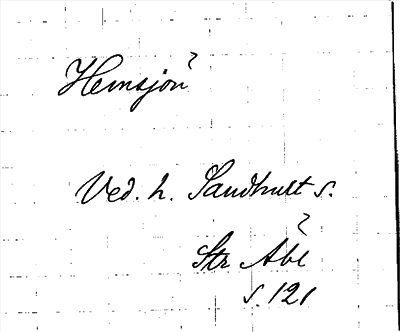 Hemsjön ?
Ved. h. Sandhult s.
?
Str Abl
s. 121